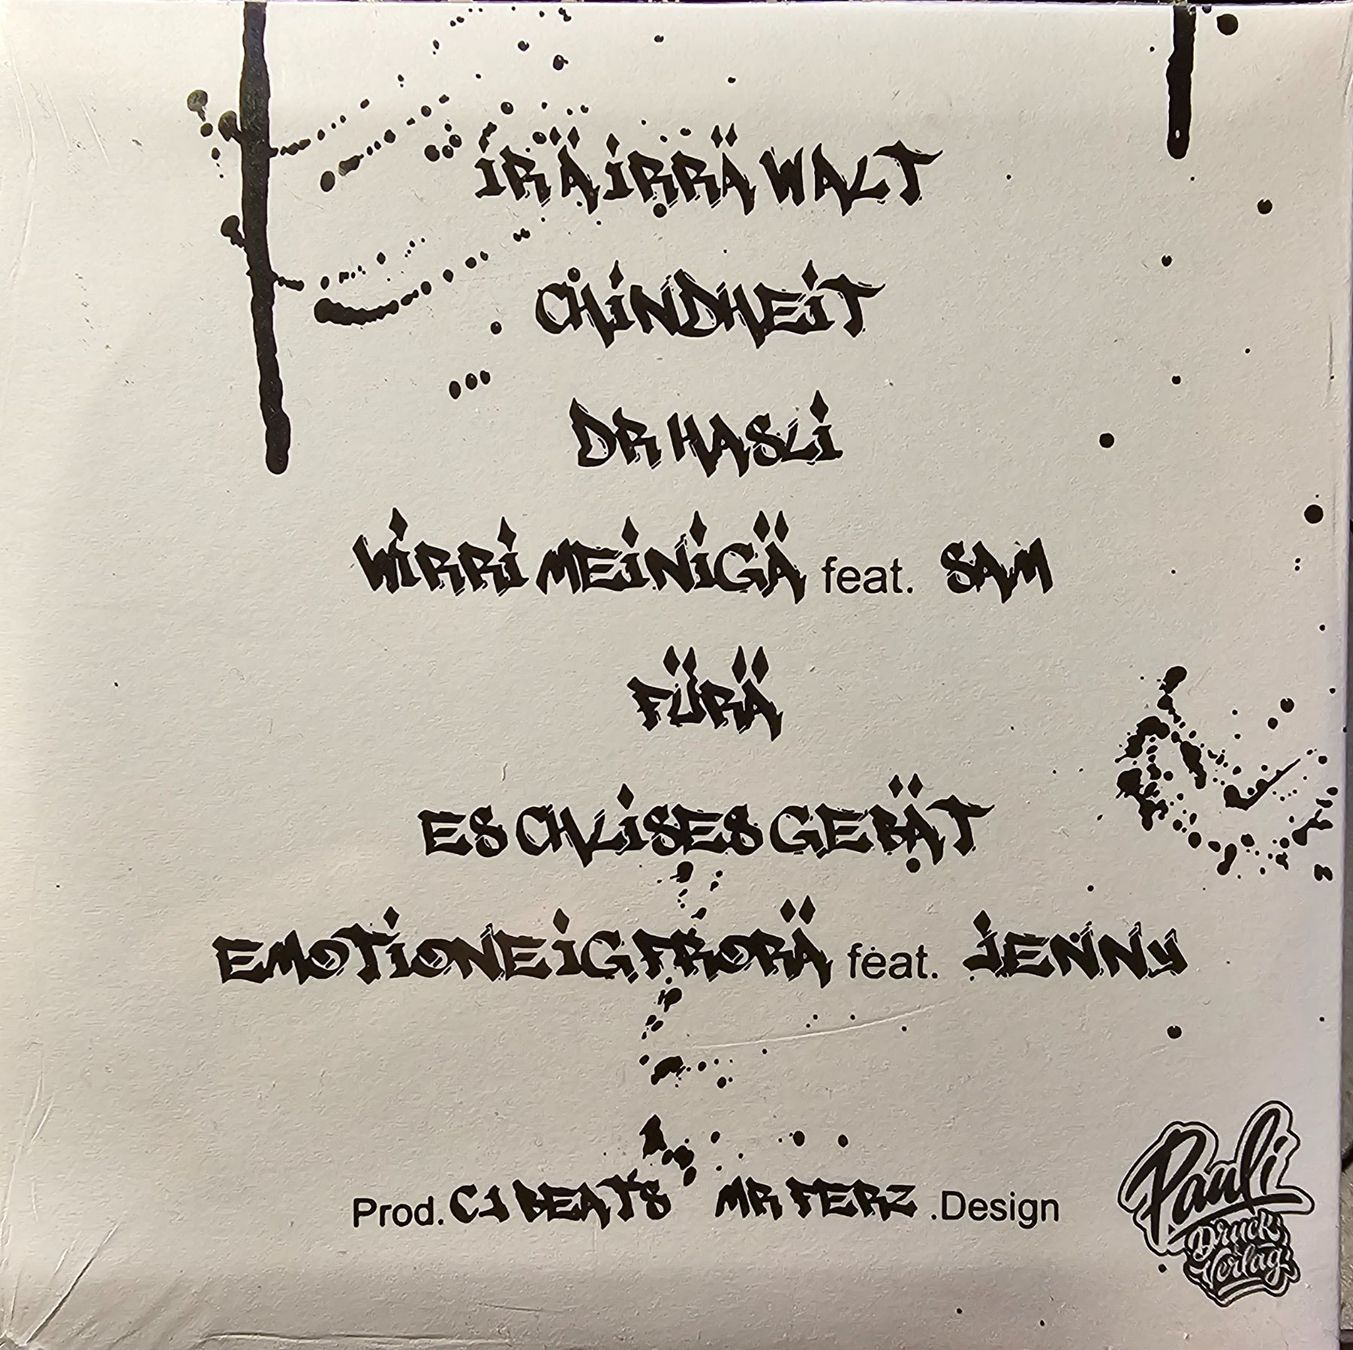 IRÄ IRRÄ WALT
CHINDHEIT
DR HASLI
WIRRI MEINIGÄ feat. SAM
FÜRÄ
ES CHLISES GEBÄT
EMOTIONE IG FRORÄ feat. JENNY
Prod. CJ BEATS MR FERZ .Design
Pauli
Druck
Verlag